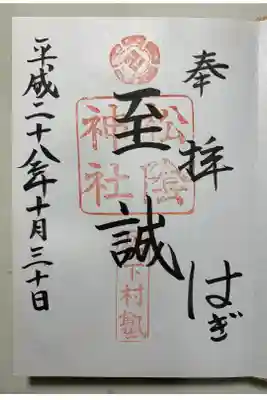 奉拝 はぎ
至誠
松陰神社
松下村塾
平成二十八年十月三十日